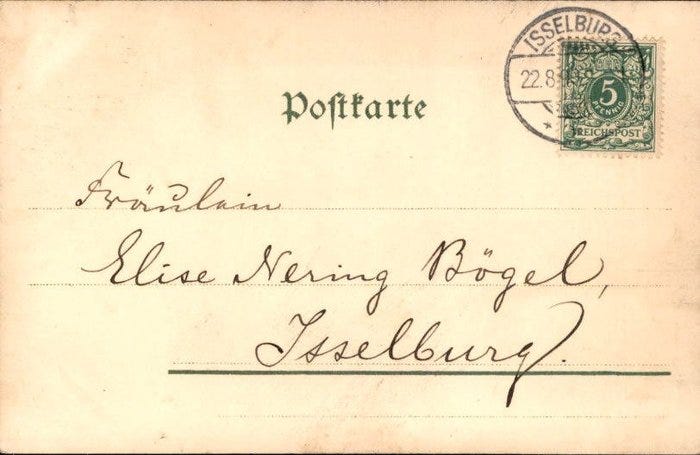 ISSELBURG
22.8
5
PFENNIG
REICHSPOST
Postkarte
Fräulein
Elise Nering Bögel,
Isselburg.